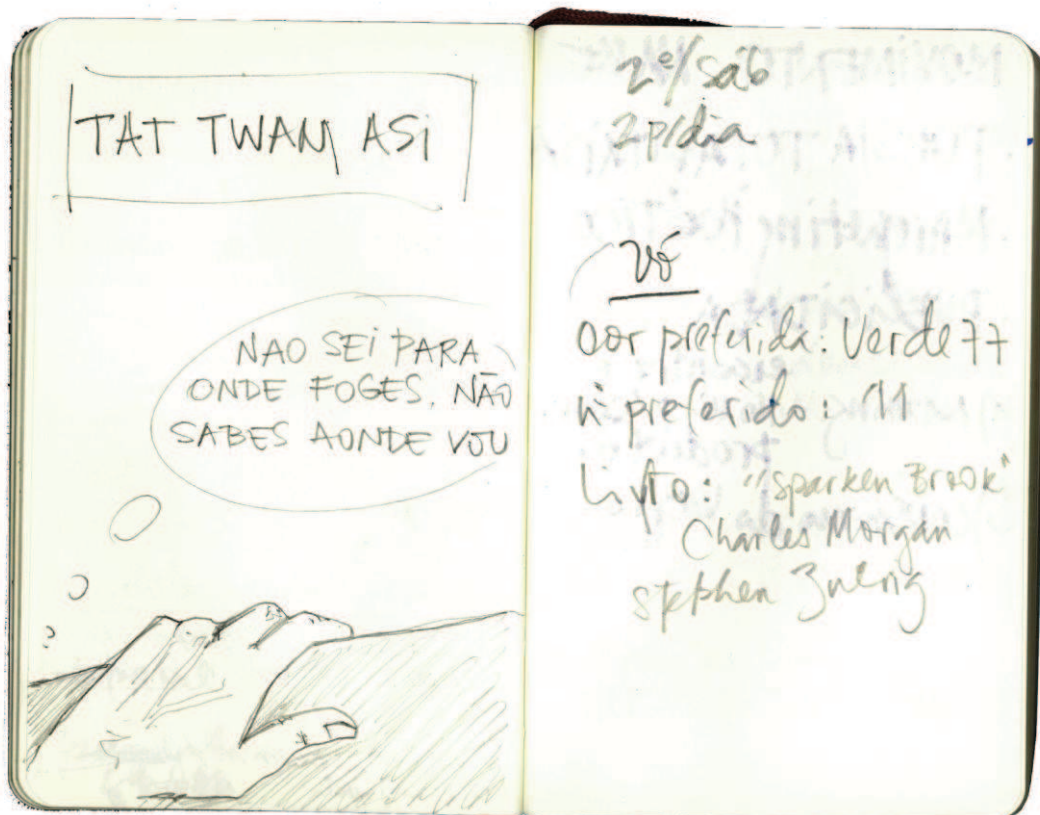 TAT TWAM ASi
NAO SEi PARA
ONDE FOGES. NÃO
SABES AONDE VOU
2ª/sáb
2 p/dia
Vó
cor preferida: Verde 77
nº preferido: 11
Livro: "Sparken Brook"
Charles Morgan
Stephen Zweig